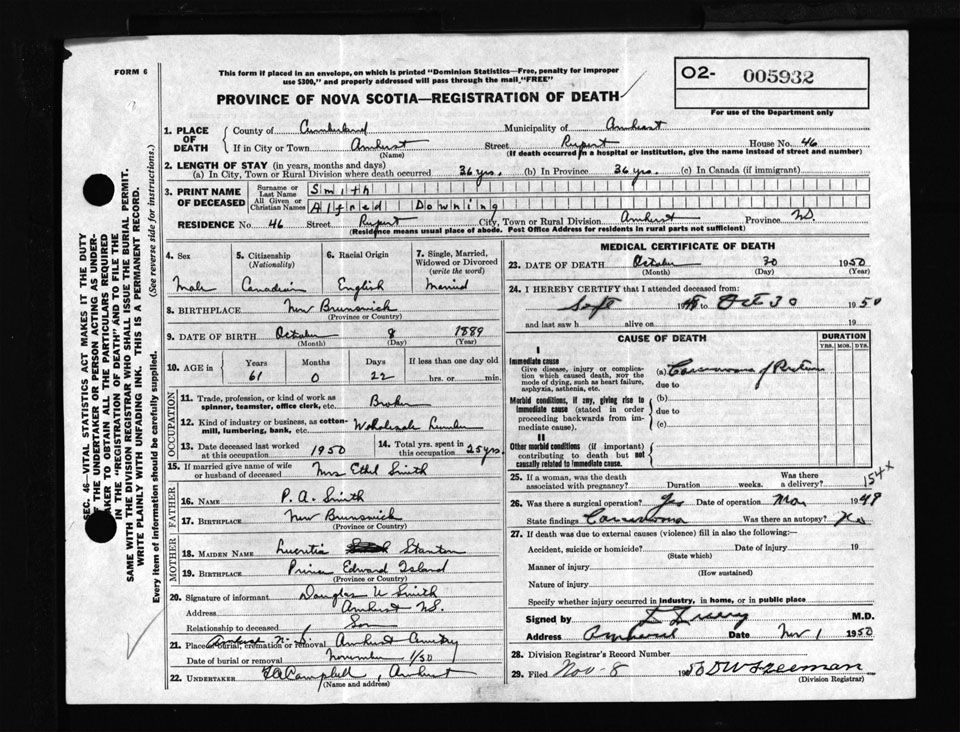 FORM 6
This form if placed in an envelope, on which is printed "Dominion Statistics—Free, penalty for improper
use $300," and properly addressed will pass through the mail "FREE"
PROVINCE OF NOVA SCOTIA—REGISTRATION OF DEATH
O2- 005932
For use of the Department only
1. PLACE OF DEATH
County of Cumberland Municipality of Amherst
If in City or Town Amherst Street Rupert House No. 46
(Name) (If death occurred in a hospital or institution, give the name instead of street and number)
2. LENGTH OF STAY (in years, months and days)
(a) In City, Town or Rural Division where death occurred 36 yrs. (b) In Province 36 yrs. (c) In Canada (if immigrant)
3. PRINT NAME OF DECEASED
Surname or Last Name Smith
All Given or Christian Names Alfred Downing
RESIDENCE No. 46 Street Rupert City, Town or Rural Division Amherst Province N.S.
(Residence means usual place of abode. Post Office Address for residents in rural parts not sufficient)
4. Sex Male
5. Citizenship (Nationality) Canadian
6. Racial Origin English
7. Single, Married, Widowed or Divorced (write the word) Married
8. BIRTHPLACE New Brunswick
(Province or Country)
9. DATE OF BIRTH October 8 1889
(Month) (Day) (Year)
10. AGE in Years 61 Months 0 Days 22 If less than one day old hrs. or min.
OCCUPATION
11. Trade, profession, or kind of work as spinner, teamster, office clerk, etc. Broker
12. Kind of industry or business, as cotton-mill, lumbering, bank, etc. Wholesale Lumber
13. Date deceased last worked at this occupation 1950
14. Total yrs. spent in this occupation 25 yrs.
15. If married give name of wife or husband of deceased Mrs Ethel Smith
FATHER
16. NAME P. A. Smith
17. BIRTHPLACE New Brunswick
(Province or Country)
MOTHER
18. MAIDEN NAME Lucretia Stanton
19. BIRTHPLACE Prince Edward Island
(Province or Country)
20. Signature of informant Douglas U Smith
Address Amherst N.S.
Relationship to deceased Son
21. Place of burial, cremation or removal Amherst N.S. Amherst Cemetery
Date of burial or removal November 1/50
22. UNDERTAKER Campbell, Amherst
(Name and address)
MEDICAL CERTIFICATE OF DEATH
23. DATE OF DEATH October 30 1950
(Month) (Day) (Year)
24. I HEREBY CERTIFY that I attended deceased from:
Sept 19 to Oct 30 1950
and last saw h alive on 19
CAUSE OF DEATH
DURATION
YRS. MOS. DYS.
I
Immediate cause
Give disease, injury or complication which caused death, NOT the mode of dying, such as heart failure, asphyxia, asthenia, etc.
(a) Carcinoma of Rectum
due to
Morbid conditions, if any, giving rise to immediate cause (stated in order proceeding backwards from immediate cause).
(b)
due to
(c)
II
Other morbid conditions (if important) contributing to death but not causally related to immediate cause.
25. If a woman, was the death associated with pregnancy? Duration weeks. Was there a delivery?
154x
26. Was there a surgical operation? Yes Date of operation Mar 1949
State findings Carcinoma Was there an autopsy? No
27. If death was due to external causes (violence) fill in also the following:—
Accident, suicide or homicide? Date of injury 19
(State which)
Manner of injury
(How sustained)
Nature of injury
Specify whether injury occurred in industry, in home, or in public place
Signed by M.D.
Address Amherst Date Nov 1 1950
28. Division Registrar's Record Number
29. Filed Nov-8 1950 DW Freeman
(Division Registrar)
SEC. 46—VITAL STATISTICS ACT MAKES IT THE DUTY
OF THE UNDERTAKER OR PERSON ACTING AS UNDER-
TAKER TO OBTAIN ALL THE PARTICULARS REQUIRED
IN THE "REGISTRATION OF DEATH" AND TO FILE THE
SAME WITH THE DIVISION REGISTRAR WHO SHALL ISSUE THE BURIAL PERMIT.
WRITE PLAINLY WITH UNFADING INK. THIS IS A PERMANENT RECORD.
Every item of information should be carefully supplied. (See reverse side for instructions.)